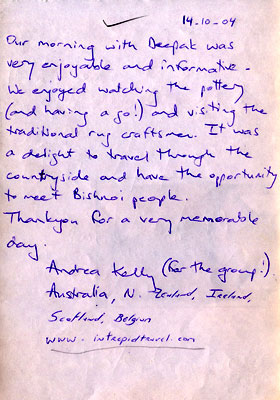 14-10-04
Our morning with Deepak was
very enjoyable and informative.
We enjoyed watching the pottery
(and having a go!) and visiting the
traditional rug craftsmen. It was
a delight to travel through the
countryside and have the opportunity
to meet Bishnoi people.
Thankyou for a very memorable
day.
Andrea Kelly (for the group!)
Australia, N. Zealand, Ireland,
Scotland, Belgium
www.intrepidtravel.com